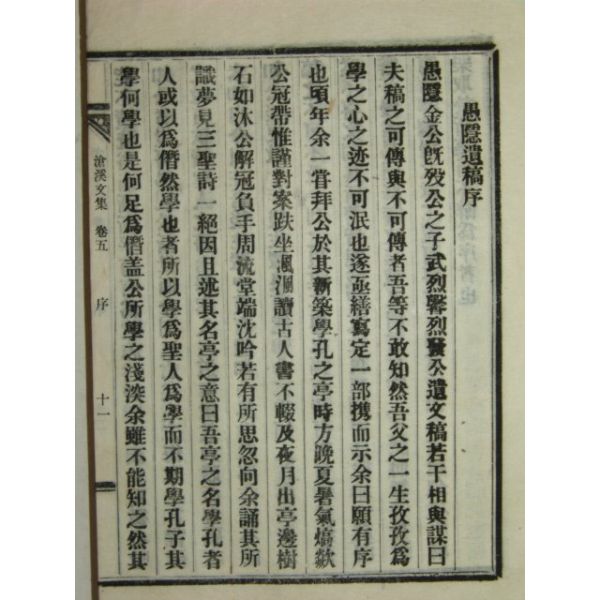 愚隱遺稿序
愚隱金公旣歿公之子武烈馨烈發公遺文稿若干相與謀曰
夫稿之可傳與不可傳者吾等不敢知然吾父之一生孜孜爲
學之心之迹不可泯也遂亟繕寫定一部携而示余曰願有序
也頃年余一嘗拜公於其新築學孔之亭時方晚夏暑氣熇歊
公冠帶惟謹對案趺坐渢渢讀古人書不輟及夜月出亭邊樹
石如沐公解冠負手周流堂端沈吟若有所思忽向余誦其所
識夢見三聖詩一絕因且述其名亭之意曰吾亭之名學孔者
人或以爲僭然學也者所以學爲聖人爲學而不期學孔子其
學何學也是何足爲僭盖公所學之淺深余雖不能知之然其
滄溪文集 卷五 序 十一